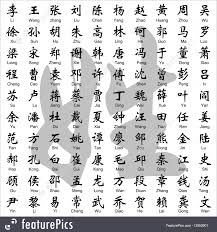 李 王 张 刘 陈 杨 赵 黄 周 吴
Li Wang Zhang Liu Chen Yang Zhao Huang Zhou Wu
徐 孙 胡 朱 高 林 何 郭 马 罗
Xu Sun Hu Zhu Gao Lin He Guo Ma Luo
梁 宋 郑 谢 韩 唐 冯 于 董 萧
Liang Song Zheng Xie Han Tang Feng Yu Dong Xiao
程 曹 袁 邓 许 傅 沈 曾 彭 吕
Cheng Cao Yuan Deng Xu Fu Shen Zeng Peng Lu
苏 卢 蒋 蔡 贾 丁 魏 薛 叶 阎
Su Lu Jiang Cai Jia Ding Wei Xue Ye Yan
余 潘 杜 戴 夏 钟 汪 田 任 姜
Yu Pan Du Dai Xia Zhong Wang Tian Ren Jiang
范 方 石 姚 谭 廖 邹 熊 金 陆
Fan Fang Shi Yao Tan Liao Zou Xiong Jin Lu
郝 孔 白 崔 康 毛 邱 秦 江 史
Hao Kong Bai Cui Kang Mao Qiu Qin Jiang Shi
顾 侯 邵 孟 龙 万 段 雷 钱 汤
Gu Hou Shao Meng Long Wan Duan Lei Qian Tang
尹 黎 易 常 武 乔 贺 赖 龚 文
Yin Li Yi Chang Wu Qiao He Lai Gong Wen
featurePics